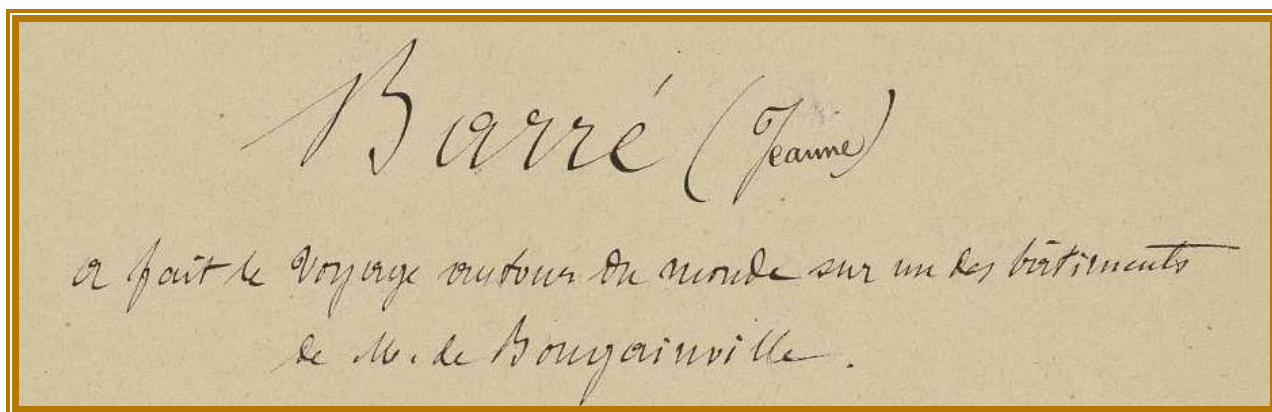 Barré (Jeanne)
a fait le voyage autour du monde sur un des bâtiments
de M. de Bougainville.